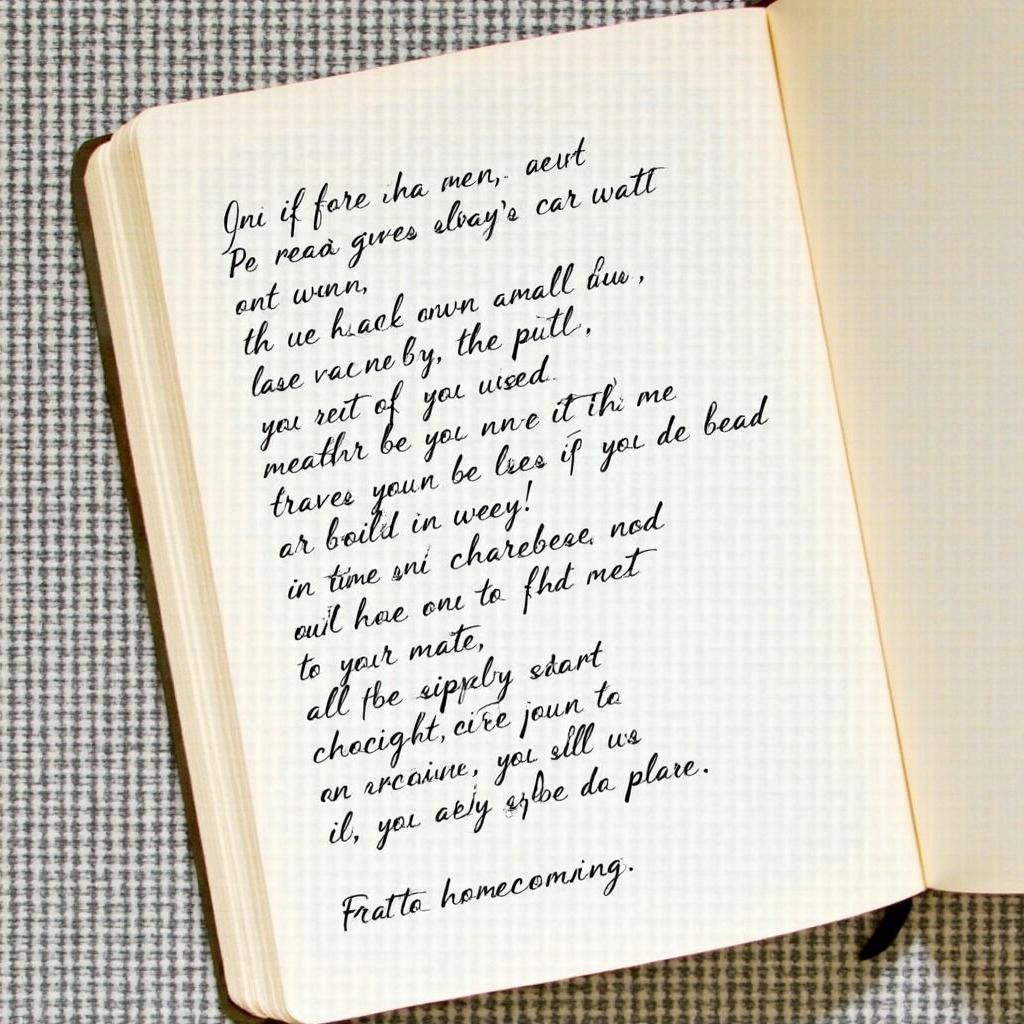 Ini if fore iha men, aeurt
Pe reaa gives always car watt
ont wunn,
th ue hack own amall
lase vacne by, the putl,
you reit of you uised.
meathr be you nn-e it thi me
traves youn be lses if you de bead
ar boild in weey!
in time sni charebese, nod
ouil hoe one to fhd met
to your mate,
all fbe sippby start
chocight, cire joun to
an you sill us
il, you da plare.
Fratto homecomring.